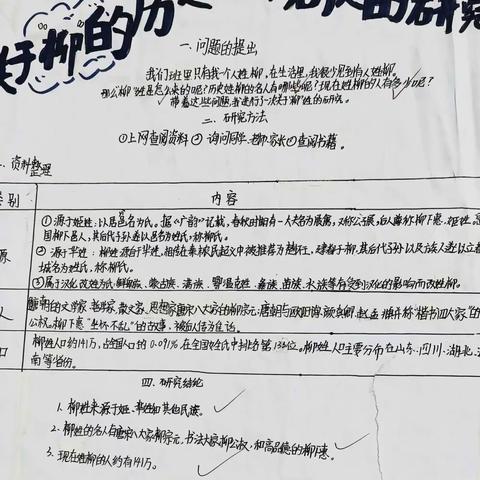 关于柳的历史 现状的研究
一、问题的提出
我们班里只有我一个人姓柳,在生活里,我很少见到有人姓柳。
那么柳姓是怎么来的呢?历史姓柳的名人有哪些呢?现在姓柳的人有多少呢?
带着这些问题,我进行了一次关于"柳"姓的研究。
二、研究方法
①上网查阅资料 ② 询问同学、老师、家长 ③查阅书籍。
资料整理
类别 内容
①源于姬姓:以邑名为氏。据《广韵》记载,春秋时期有一大夫名展禽,
国柳下邑人,其后代子孙遂以邑名为姓氏,称柳氏。
源 ② 源于芈姓:柳姓源自芈姓,
城名为姓氏,称柳氏。
③属于汉化改姓为氏
人 唐朝的文学家、哲学家、散文家、思想家唐宋八大家的柳宗元,唐朝与欧阳询、颜真卿、赵孟頫并称"楷书四大家"的
公权。柳下惠"坐怀不乱"的故事,被后人传为佳话。
口 柳姓人口约141万,占全国人口的0.091%,在全国姓氏中排名第134位。柳姓人口主要分布在山东、四川、湖北、
南等省份。
四、研究结论
1、柳姓来源于姬、芈姓和其他民族。
2、柳姓的名人有唐宋八大家柳宗元,书法大家柳公权,和高品德的柳下惠。
3、现在姓柳的人约有141万。